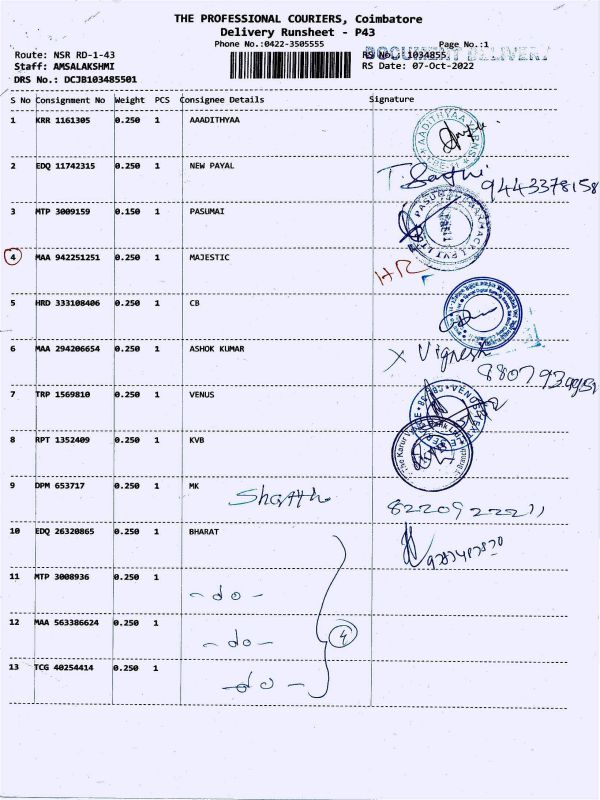 THE PROFESSIONAL COURIERS, Coimbatore
Delivery Runsheet - P43
Phone No.:0422-3505555
Page No.:1
DOCUMENT DELIVERY
Route: NSR RD-1-43
RS No.: 1034855
Staff: AMSALAKSHMI
RS Date: 07-Oct-2022
DRS No.: DCJB103485501
S No Consignment No Weight PCS Consignee Details Signature
1 KRR 1161305 0.250 1 AAADITHYAA
2 EDQ 11742315 0.250 1 NEW PAYAL
9443378158
3 MTP 3009159 0.150 1 PASUMAI
4 MAA 942251251 0.250 1 MAJESTIC HR
5 HRD 333108406 0.250 1 CB
6 MAA 294206654 0.250 1 ASHOK KUMAR X Vignesh
7 TRP 1569810 0.250 1 VENUS
8 RPT 1352409 0.250 1 KVB
9 DPM 653717 0.250 1 MK
8220922211
10 EDQ 26320865 0.250 1 BHARAT
11 MTP 3008936 0.250 1 - do -
12 MAA 563386624 0.250 1 - do - 4
13 TCG 40254414 0.250 1 - do -